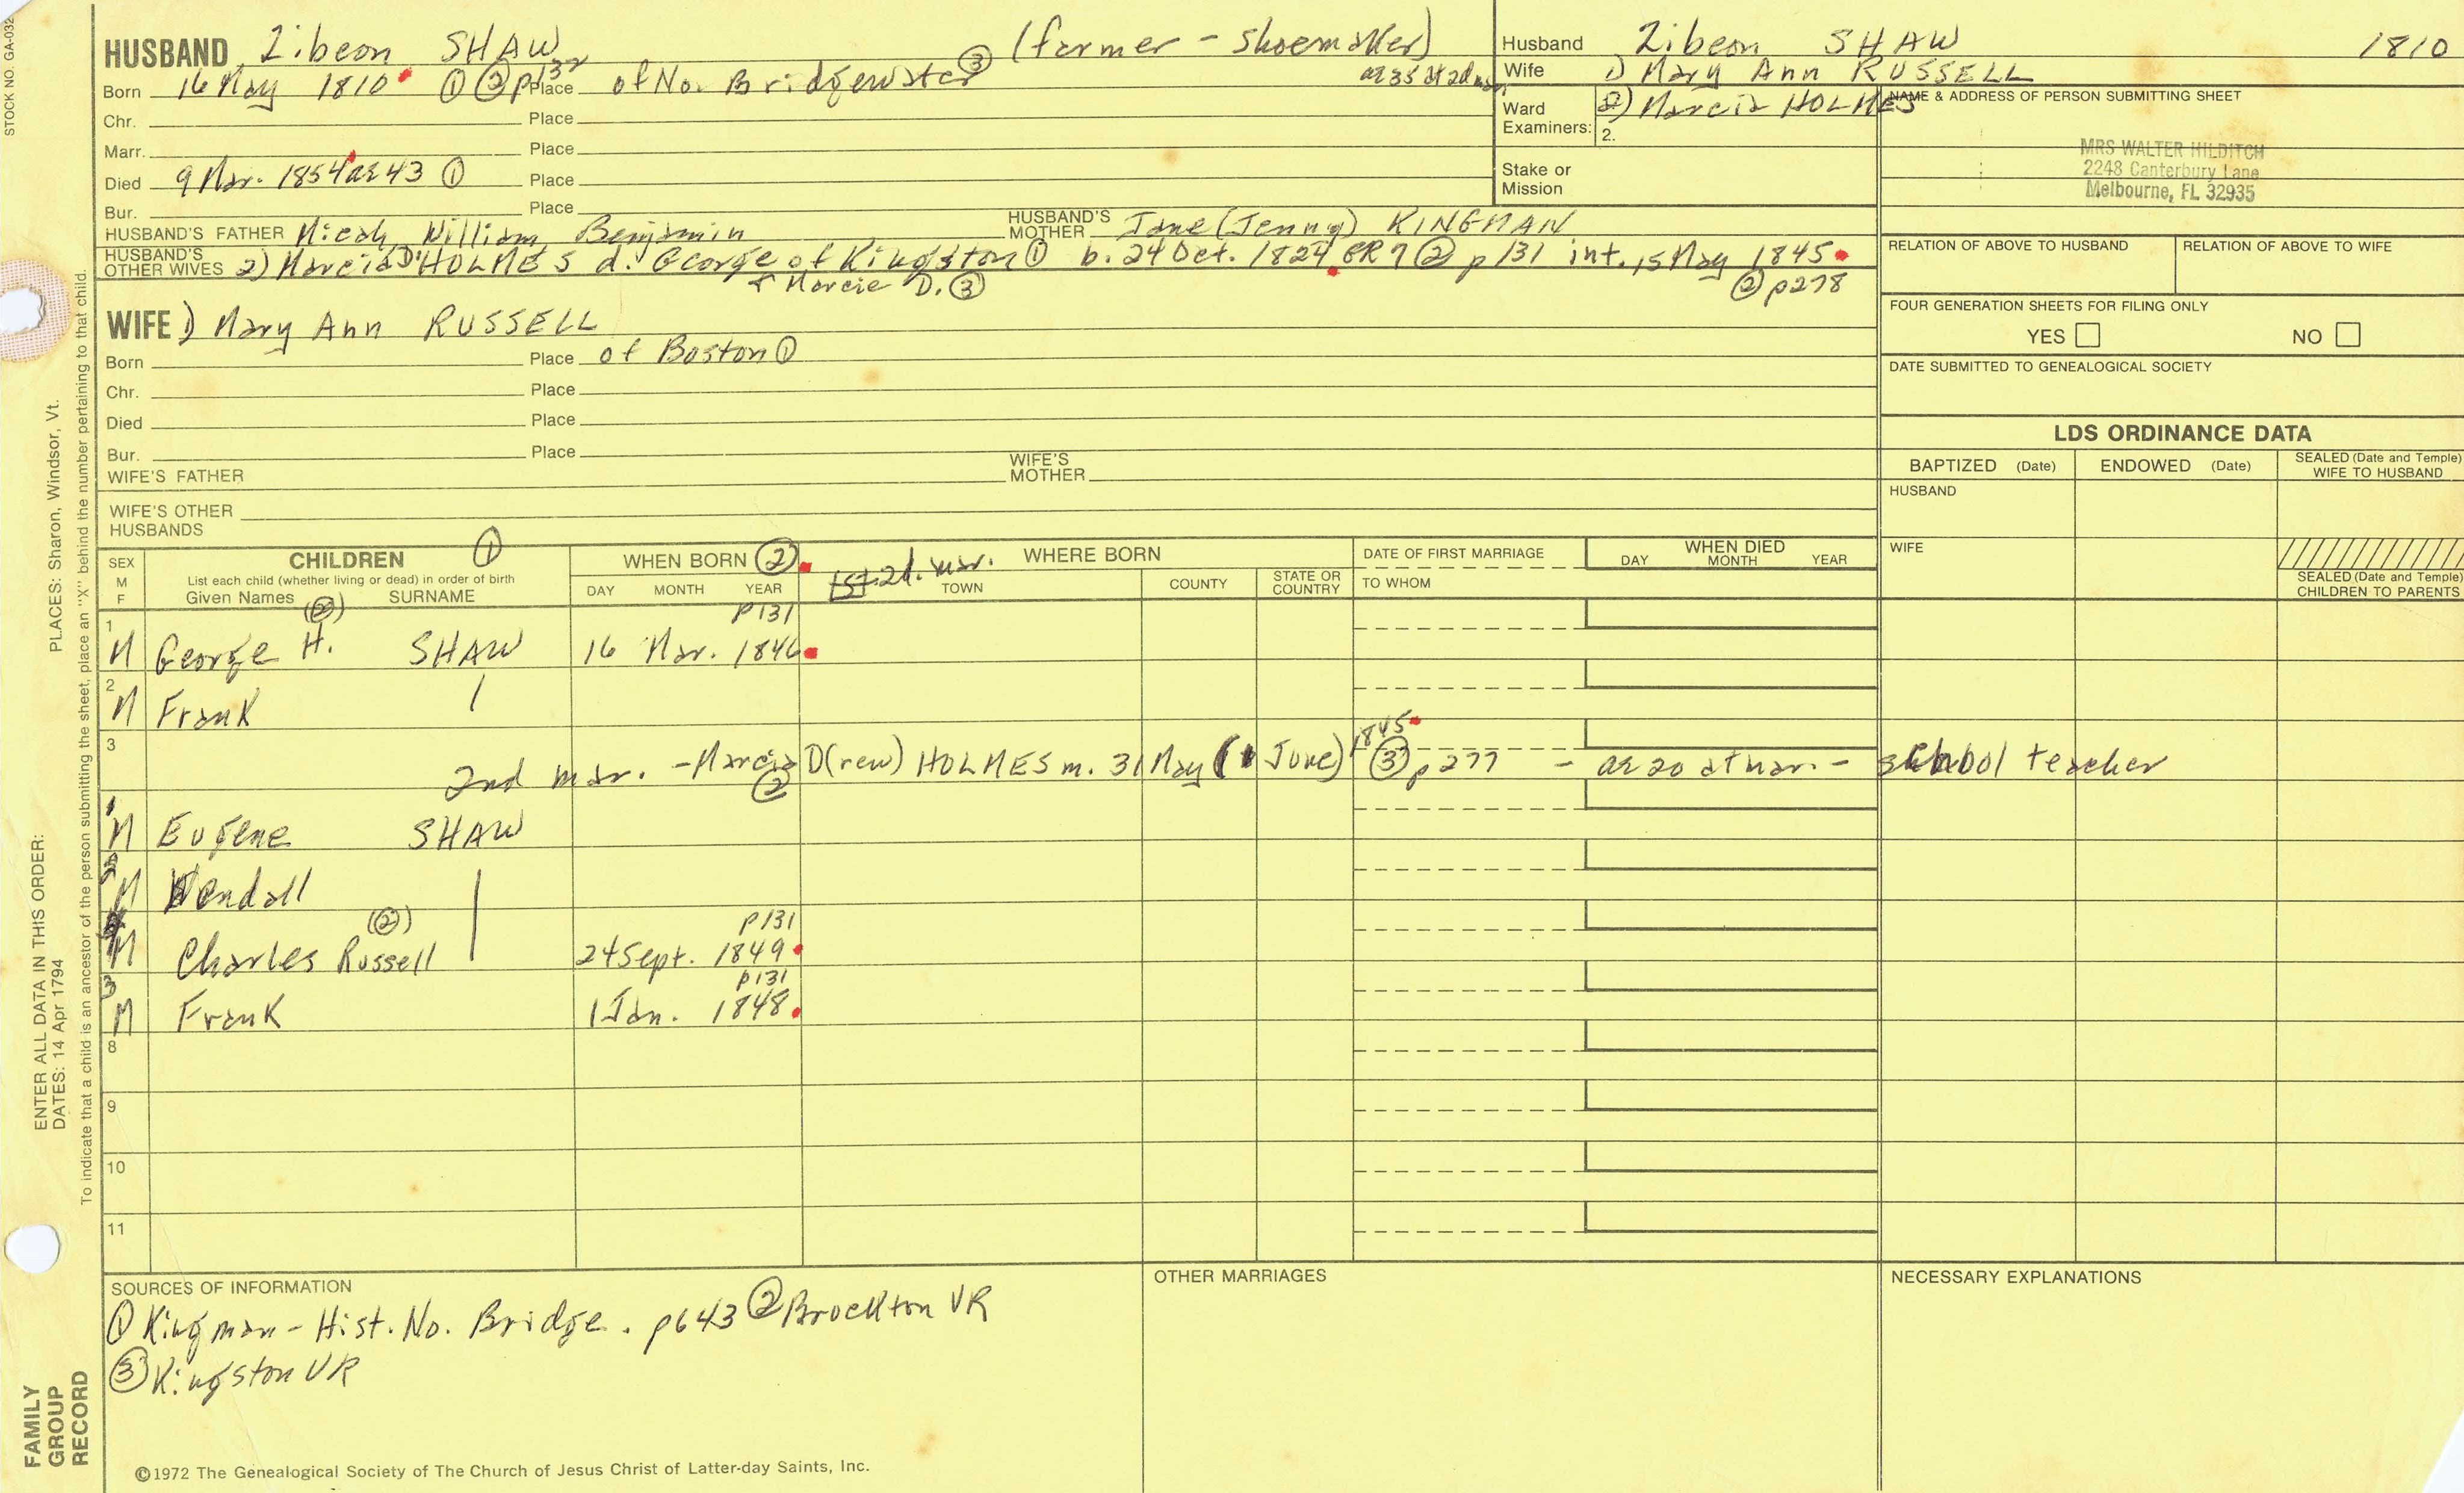 STOCK NO. GA-032
HUSBAND Zibeon SHAW (farmer - shoemaker)
Born 16 May 1810 ① ② p132 Place of No. Bridgewater ③ ae 35 at 2d mar.
Chr. Place
Marr. Place
Died 9 Mar. 1854 ae 43 ① Place
Bur. Place
HUSBAND'S FATHER Micah, William, Benjamin HUSBAND'S MOTHER Jane (Jenny) KINGMAN
HUSBAND'S OTHER WIVES 2) Marcia D. HOLMES d. George of Kingston ① b. 24 Oct. 1824 GR7 ② p131 int. 15 May 1845
+ Marcie D. ③ ② p278
WIFE 1) Mary Ann RUSSELL
Born Place of Boston ①
Chr. Place
Died Place
Bur. Place
WIFE'S FATHER WIFE'S MOTHER
WIFE'S OTHER HUSBANDS
Husband Zibeon SHAW 1810
Wife 1) Mary Ann RUSSELL
Ward 2) Marcia HOLMES
Examiners: 2.
Stake or Mission
NAME & ADDRESS OF PERSON SUBMITTING SHEET
MRS WALTER HILDITCH
2248 Canterbury Lane
Melbourne, FL 32935
RELATION OF ABOVE TO HUSBAND RELATION OF ABOVE TO WIFE
FOUR GENERATION SHEETS FOR FILING ONLY
YES NO
DATE SUBMITTED TO GENEALOGICAL SOCIETY
LDS ORDINANCE DATA
BAPTIZED (Date) ENDOWED (Date) SEALED (Date and Temple) WIFE TO HUSBAND
HUSBAND
WIFE
SEALED (Date and Temple) CHILDREN TO PARENTS
SEX M F
CHILDREN ①
List each child (whether living or dead) in order of birth
Given Names SURNAME
WHEN BORN ②
DAY MONTH YEAR
1st 2d. mar. WHERE BORN
TOWN COUNTY STATE OR COUNTRY
DATE OF FIRST MARRIAGE
TO WHOM
WHEN DIED
DAY MONTH YEAR
(②) p131
1 M George H. SHAW 16 Mar. 1846
2 M Frank
3 2nd mar. - Marcia D(rew) HOLMES m. 31 May (1 June) 1845 ③ p277 - ae 20 at mar. - school teacher
②
1 M Eugene SHAW
M Wendall
(②) p131
M Charles Russell 24 Sept. 1849
p131
3 M Frank 1 Jan. 1848
8
9
10
11
SOURCES OF INFORMATION
① Kingman - Hist. No. Bridge. p643 ② Brockton VR
③ Kingston VR
OTHER MARRIAGES
NECESSARY EXPLANATIONS
©1972 The Genealogical Society of The Church of Jesus Christ of Latter-day Saints, Inc.
ENTER ALL DATA IN THIS ORDER:
DATES: 14 Apr 1794
PLACES: Sharon, Windsor, Vt.
To indicate that a child is an ancestor of the person submitting the sheet, place an "X" behind the number pertaining to that child.
FAMILY GROUP RECORD